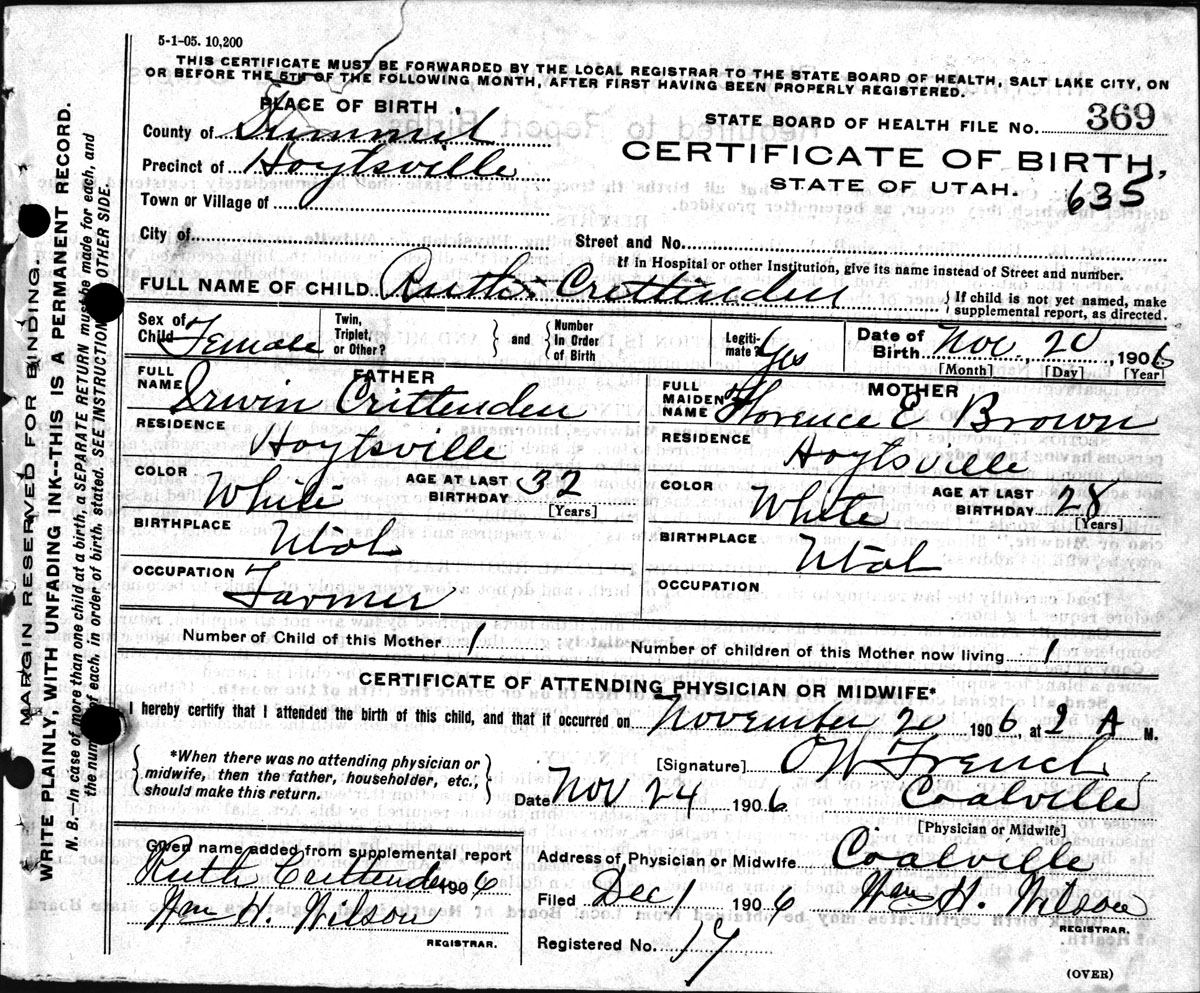 5-1-05. 10,200
THIS CERTIFICATE MUST BE FORWARDED BY THE LOCAL REGISTRAR TO THE STATE BOARD OF HEALTH, SALT LAKE CITY, ON
OR BEFORE THE 5TH OF THE FOLLOWING MONTH, AFTER FIRST HAVING BEEN PROPERLY REGISTERED.
PLACE OF BIRTH
STATE BOARD OF HEALTH FILE NO. 369
County of Summit
CERTIFICATE OF BIRTH,
Precinct of Hoytsville
STATE OF UTAH. 635
Town or Village of
City of Street and No.
If in Hospital or other Institution, give its name instead of Street and number.
FULL NAME OF CHILD Ruth Crittenden } If child is not yet named, make
supplemental report, as directed.
Sex of Child Female
Twin, Triplet, or Other? } and { Number In Order of Birth
Legitimate? Yes
Date of Birth Nov. 20, 1906
[Month] [Day] [Year]
FATHER
FULL NAME Irwin Crittenden
RESIDENCE Hoytsville
COLOR White AGE AT LAST BIRTHDAY 32
[Years]
BIRTHPLACE Utah
OCCUPATION Farmer
MOTHER
FULL MAIDEN NAME Florence E Brown
RESIDENCE Hoytsville
COLOR White AGE AT LAST BIRTHDAY 28
[Years]
BIRTHPLACE Utah
OCCUPATION
Number of Child of this Mother 1 Number of children of this Mother now living 1
CERTIFICATE OF ATTENDING PHYSICIAN OR MIDWIFE*
I hereby certify that I attended the birth of this child, and that it occurred on November 20 1906, at 2 A M.
{ *When there was no attending physician or
midwife, then the father, householder, etc.,
should make this return. }
[Signature] O W French
Date Nov 24 1906. Coalville
[Physician or Midwife]
Given name added from supplemental report
Ruth Crittenden 1906
Wm H. Wilson
REGISTRAR.
Address of Physician or Midwife Coalville
Filed Dec 1 1906 Wm H. Wilson
REGISTRAR.
Registered No. 17
(OVER)
MARGIN RESERVED FOR BINDING.
WRITE PLAINLY, WITH UNFADING INK--THIS IS A PERMANENT RECORD.
N. B.—In case of more than one child at a birth, a SEPARATE RETURN must be made for each, and
the number of each, in order of birth, stated. SEE INSTRUCTIONS ON OTHER SIDE.